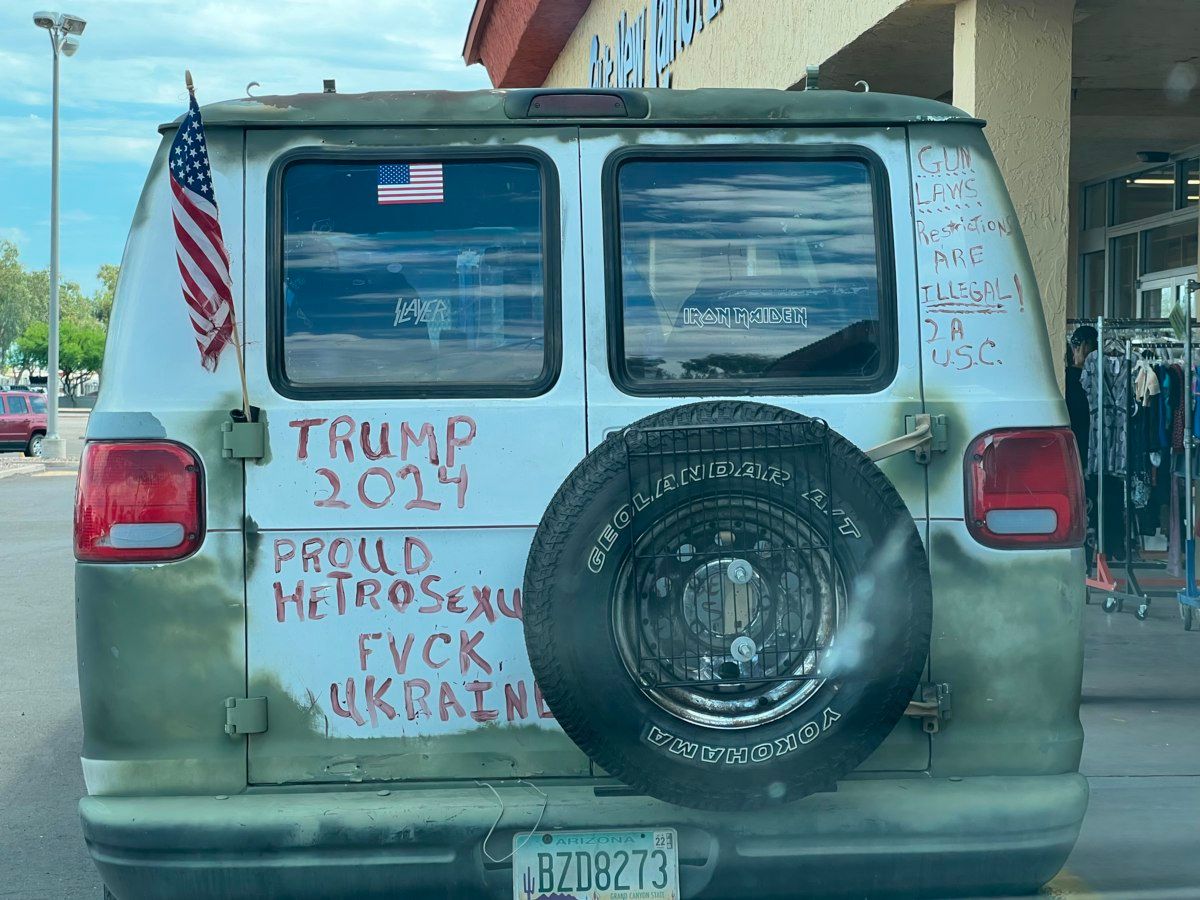 Our New
GUN
LAWS
Restrictions
ARE
ILLEGAL!
2A
U.S.C.
SLAYER
IRON MAIDEN
TRUMP
2024
PROUD
HETROSEXU
FVCK
UKRAINE
GEOLANDAR A/T
YOKOHAMA
ARIZONA
22
BZD8273
GRAND CANYON STATE